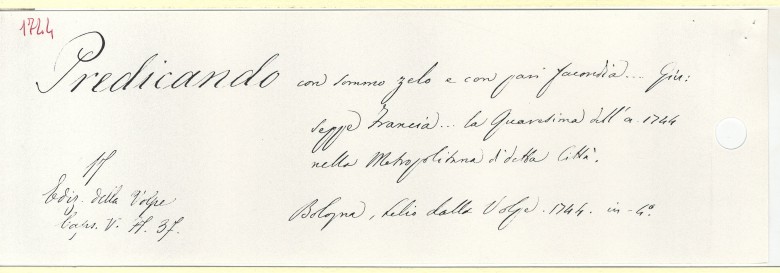 1744
Predicando con sommo zelo e con pari facondia... Giu:
seppe Francia... la Quaresima dell'a. 1744
nella Metropolitana di detta Città.
17
Ediz. della Volpe
Caps. V. N. 37.
Bologna, Lelio dalla Volpe. 1744. in-4º.